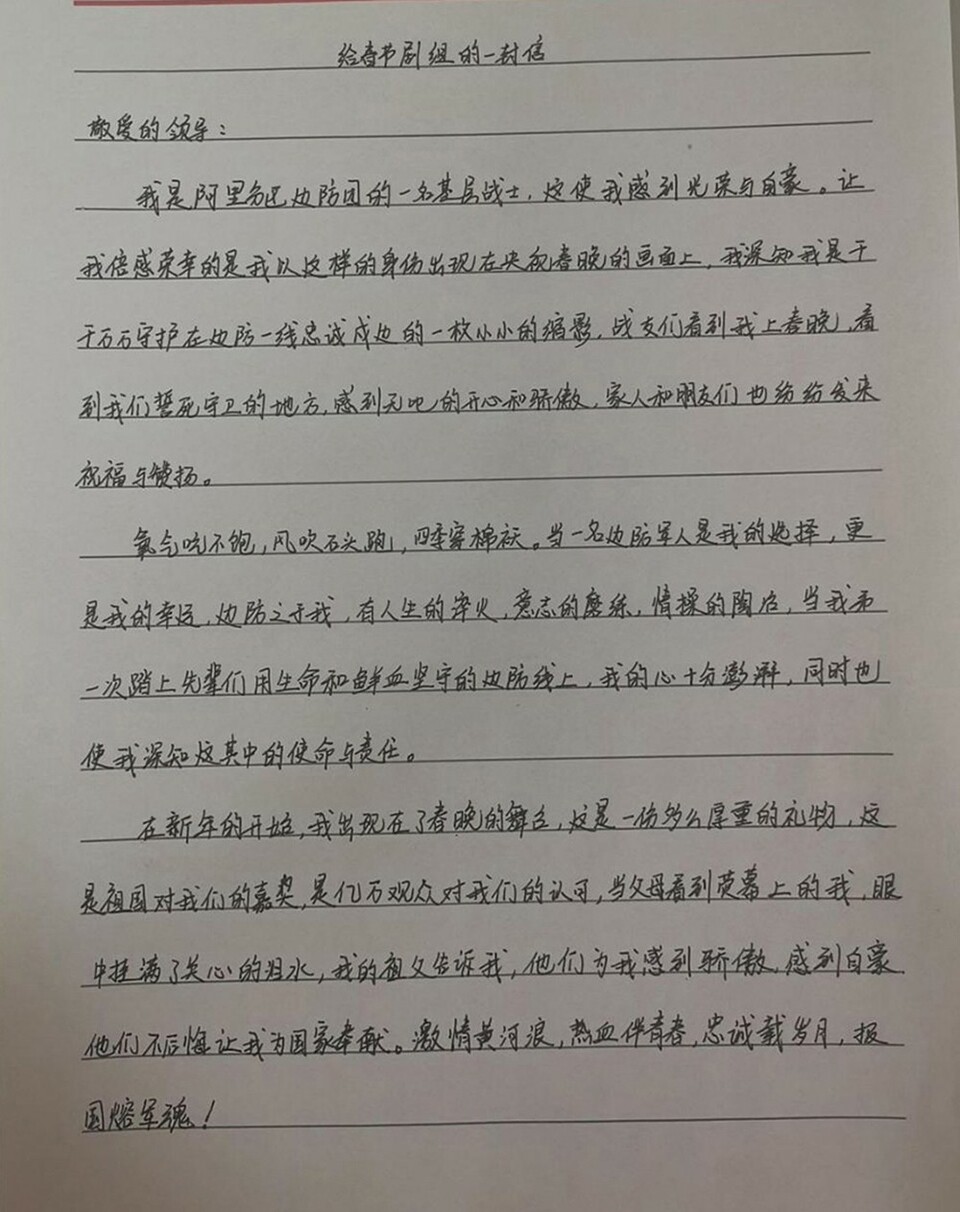 给春节剧组的一封信
敬爱的领导：
我是阿里军区边防团的一名基层战士，这使我感到光荣与自豪。让
我倍感荣幸的是我以这样的身份出现在央视春晚的画面上，我深知我是千
千万万守护在边防一线忠诚戍边的一枚小小的缩影，战友们看到我上春晚，看
到我们誓死守卫的地方，感到无比的开心和骄傲，家人和朋友们也纷纷发来
祝福与赞扬。
氧气吃不饱，风吹石头跑，四季穿棉袄。当一名边防军人是我的选择，更
是我的幸运，边防之于我，有人生的淬火，意志的磨练，情操的陶冶，当我第
一次踏上先辈们用生命和鲜血坚守的边防线上，我的心十分澎湃，同时也
使我深知这其中的使命与责任。
在新年的开始，我出现在了春晚的舞台，这是一份多么厚重的礼物，这
是祖国对我们的嘉奖，是亿万观众对我们的认可，当父母看到荧幕上的我，眼
中挂满了关心的泪水，我的祖父告诉我，他们为我感到骄傲，感到自豪
他们不后悔让我为国家奉献。激情黄河浪，热血伴青春，忠诚载岁月，报
国熔军魂！